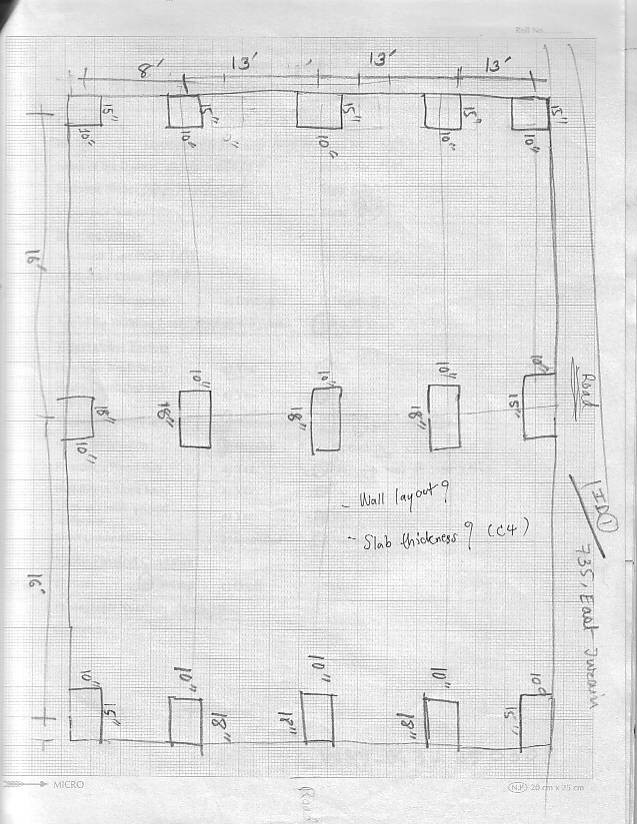 Roll No.
8' 13' 13' 13'
15" 15" 15" 15" 15"
10" 10" 10" 10" 10"
16'
10" 10" 10" 10"
18" 18" 18" 18" 15"
10"
Road
- Wall layout?
- Slab thickness? (C4)
ID①
735, East Jurain
16'
10" 10" 10" 10" 10"
15" 18" 18" 18" 15"
MICRO
N.P 20 cm x 25 cm